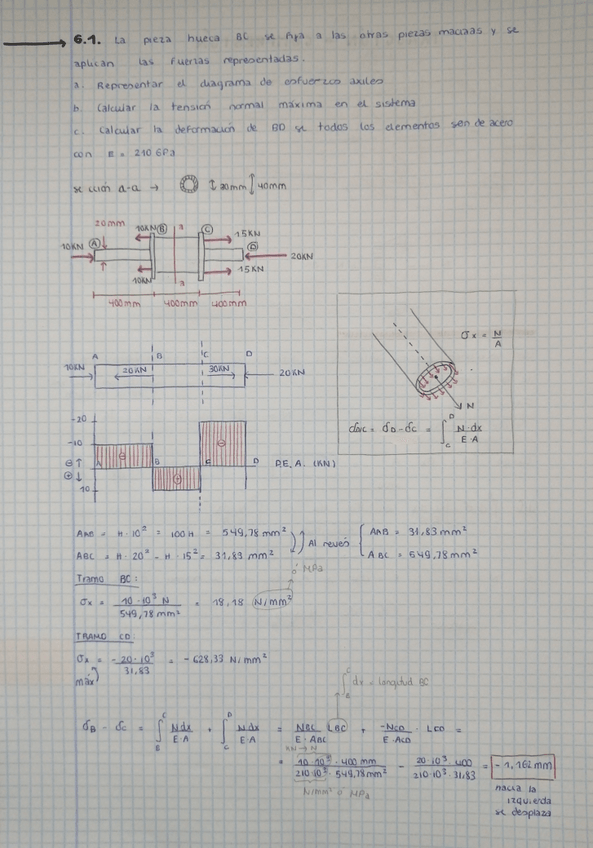 6.1. La pieza hueca BC se fija a las otras piezas macizas y se
aplican las fuerzas representadas.
a. Representar el diagrama de esfuerzos axiles
b. Calcular la tensión normal máxima en el sistema
c. Calcular la deformación de BD se todos los elementos son de acero
con E = 210 GPa
sección a-a → 30mm 40mm
20mm 10KN B a C 15KN
10KN A D 20KN
10KN a 15KN
400mm 400mm 400mm
σx = N/A
N
A B C D
10KN 20KN 30KN 20KN
dBC = δD - δC = ∫ N·dx / E·A
D C
-20
-10
⊖↑ A ⊖ B C ⊖ D D.E.A. (KN)
⊕↓ ⊕
10
AAB = π·10² = 100π = 549,78 mm² Al revés AAB = 31,83 mm²
ABC = π·20² - π·15² = 31,83 mm² ABC = 549,78 mm²
Tramo BC: ó MPa
σx = 10·10³ N / 549,78 mm² = 18,18 N/mm²
TRAMO CD:
σx = -20·10³ / 31,83 = -628,33 N/mm²
máx
∫ dx = longitud BC
δB - δC = ∫ N dx / E·A + ∫ N dx / E·A = NBC / E·ABC LBC + -NCD / E·ACD · LCD =
KN → N
= 10·10³·400 mm / 210·10³·549,78 mm² - 20·10³·400 / 210·10³·31,83 = -1,162 mm
N/mm² ó MPa
hacia la
izquierda
se desplaza